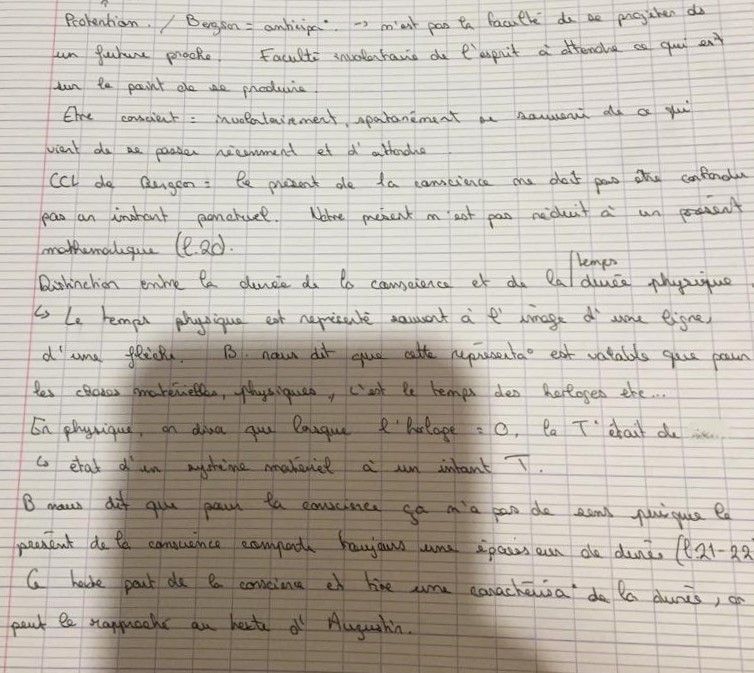 Protention. / Bergson = anticipa°. -> n'est pas la faculté de se projeter ds
un future proche. Faculté involontaire de l'esprit à attendre ce qui est
sur le point de se produire.
Etre conscient = involontairement, spatanément se souvenir de ce qui
vient de se passer récemment et d'attendre
CCL de Bergson = le présent de la conscience ne doit pas être confondu
pas un instant ponctuel. Notre présent n'est pas réduit à un présent
mathématique (l.20).
Distinction entre la durée de la conscience et de la / temps durée physique
↳ Le temps physique est représenté souvent à l'image d'une ligne,
d'une flèche. B. nous dit que cette représenta° est valable que pour
les choses matérielles, physiques, c'est le temps des horloges etc...
En physique, on dira que lorsque l'horloge = 0, la T° était de ...
↳ état d'un système matériel à un intant T.
B nous dit que pour la conscience ça n'a pas de sens puisque le
présent de la conscience comporte toujours une épaisseur de durée (l.21-22
Ce texte part de la conscience et tire une caractérisa° de la durée, on
peut le rapproché au texte d'Augustin.